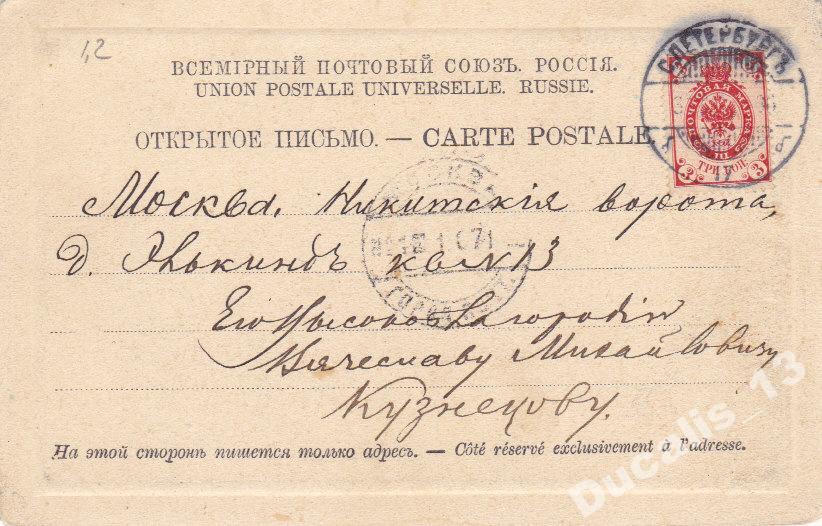 1,2
ВСЕМІРНЫЙ ПОЧТОВЫЙ СОЮЗЪ. РОССІЯ.
UNION POSTALE UNIVERSELLE. RUSSIE.
С.ПЕТЕРБУРГЪ
ПОЧТОВАЯ МАРКА
III
3 ТРИ КОП. 3
17
ОТКРЫТОЕ ПИСЬМО. — CARTE POSTALE.
МОСКВА
Москва. Никитскія ворота,
д. Элькиндъ кв № 13
Его Высокоблагородію
Вячеславу Михайловичу
Кузнецову.
На этой сторонѣ пишется только адресъ. — Côté réservé exclusivement à l'adresse.
Ducalis_13